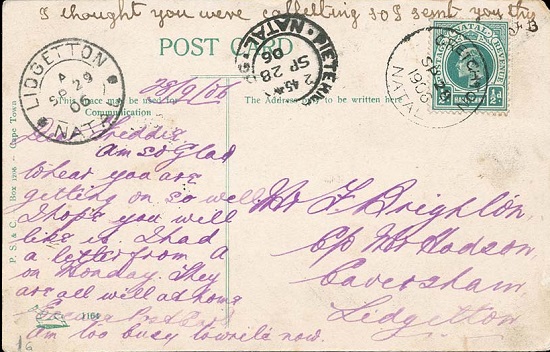 I thought you were collecting so I sent you thys
B
POST CARD
LIDGETTON
A
SP 29
06
NATAL
NATAL
2 45
SP 28
06
NATAL
POSTAGE REVENUE
HALF
28/9/06
This place may be used for Communication
The address to be written here
Dear Freddie
am so glad
to hear you are
getting on so well
I hope you will
like it. I had
a letter from A
on Monday. They
are all well at home
Am too busy to write now.
Mr F Brighton,
C/o Mr Hodson,
Caversham,
Lidgetton
P. S. & C. Box 1286. Cape Town
1164